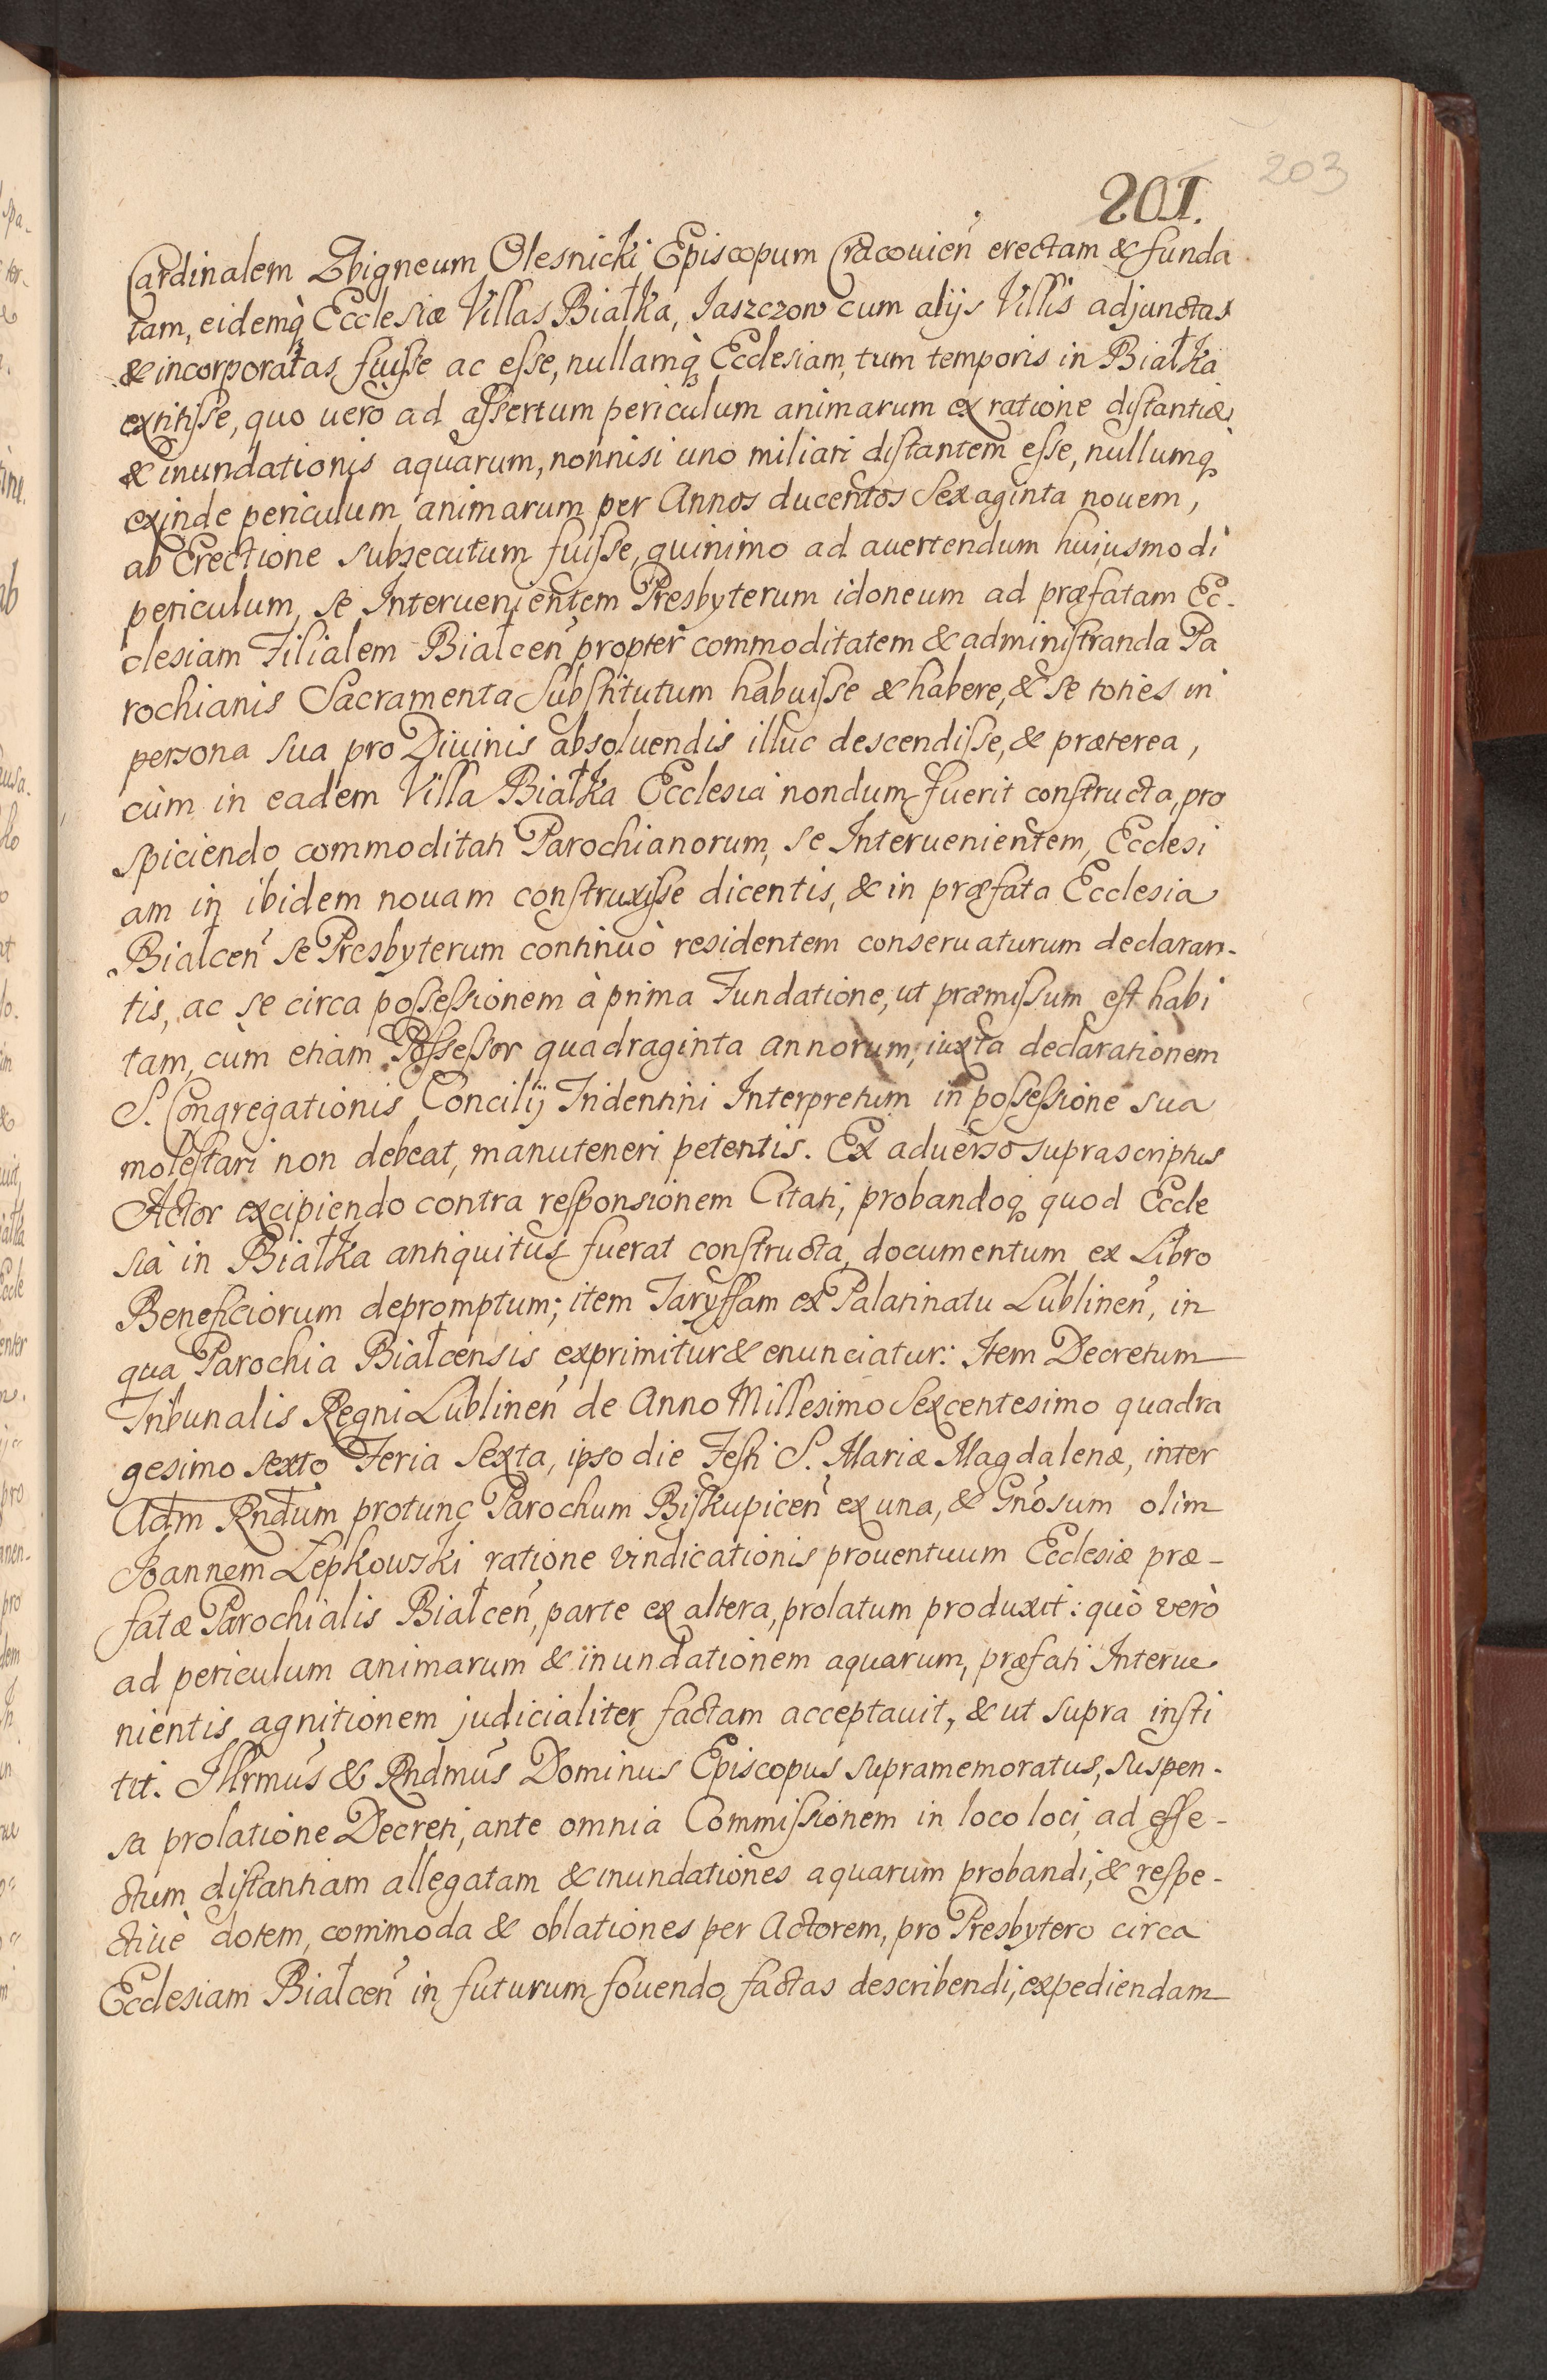 203
201.
Cardinalem Zbigneum Olesnicki Episcopum Cracouien̄ erectam & funda
tam, eidemq̀ Ecclesiæ Villas Białka, Jaszczow cum alijs Villis adjunctas
& incorporatas fuisse ac esse, nullamq̀ Ecclesiam, tum temporis in Białka
extitisse, quo uerò ad assertum periculum animarum ex ratione distantiæ,
& inundationis aquarum, nonnisi uno miliari distantem esse, nullumq̀
exinde periculum animarum per Annos ducentos Sexaginta nouem,
ab Erectione subsecutum fuisse, quinimo ad auertendum huiusmodi
periculum, se Interuenientem Presbyterum idoneum ad præfatam Ec-
clesiam Filialem Białcen̄ propter commoditatem & administranda Pa
rochianis Sacramenta Substitutum habuisse & habere, & se toties in
persona sua pro Diuinis absoluendis illuc descendisse, & præterea,
cùm in eadem Villa Białka Ecclesia nondum fuerit constructa, pro
spiciendo commoditati Parochianorum, se Interuenientem, Ecclesi
am in ibidem nouam construxisse dicentis, & in præfata Ecclesia
Białcen̄ se Presbyterum continuò residentem conseruaturum declaran-
tis, ac se circa possessionem à prima Fundatione, ut præmissum est habi
tam, cùm etiam Possessor quadraginta annorum, iuxta declarationem
S. Congregationis Concilij Tridentini Interpretum in possessione sua
molestari non debeat, manuteneri petentis. Ex aduerso suprascriptus
Actor excipiendo contra responsionem Citati, probandoq̀ quod Eccle
sia in Białka antiquitus fuerat constructa, documentum ex Libro
Beneficiorum depromptum; item Taryffam ex Palatinatu Lublinen̄, in
qua Parochia Białcensis exprimitur & enunciatur: Item Decretum
Tribunalis Regni Lublinen̄ de Anno Millesimo Sexcentesimo quadra
gesimo sexto Feria Sexta, ipso die Festi S. Mariæ Magdalenæ, inter
Adm̄ Rnd̄um protunc Parochum Biskupicen̄ ex una, & Gnōsum olim
Joannem Łepkowski ratione vindicationis prouentuum Ecclesiæ præ-
fatæ Parochialis Białcen̄, parte ex altera, prolatum produxit: quò verò
ad periculum animarum & inundationem aquarum, præfati Interue
nientis agnitionem judicialiter factam acceptauit, & ut supra insti
tit. Illrmūs & Rndmūs Dominus Episcopus supramemoratus, suspen-
sa prolatione Decreti, ante omnia Commissionem in loco loci, ad effe-
ctum distantiam allegatam & inundationes aquarum probandi, & respe-
ctiuè dotem, commoda & oblationes per Actorem, pro Presbytero circa
Ecclesiam Białcen̄ in futurum fouendo factas describendi, expediendam